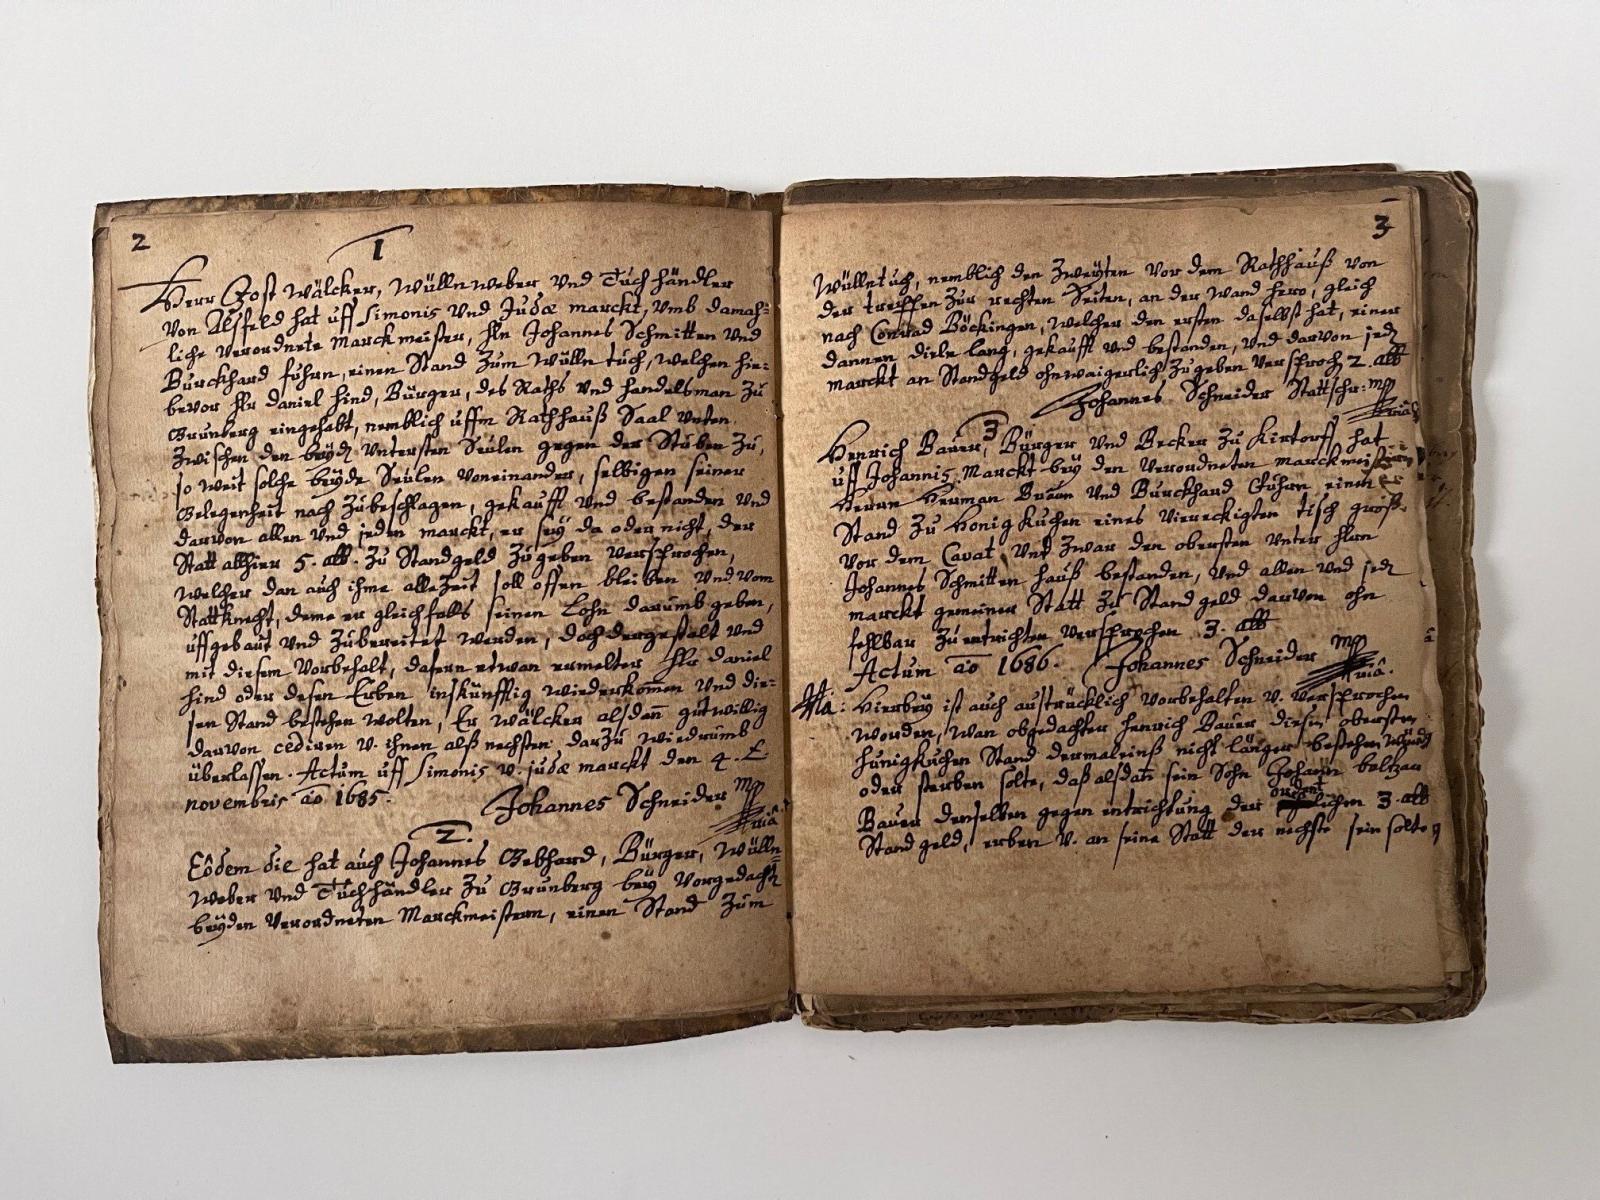 2
1
Herr Jost Wälcker, Wüllnweber und Tuchhändler
von Alsfeld hat uff Simonis und Judæ marckt, umb damah=
liche verordnete Marckmeister, Hln Johannes Schmitten und
Burckhard führn, einen Stand zum Wülln tuch, welchen hie=
bevor Hlr daniel hind, Bürger, des Raths und handelsman zu
Grunberg eingehabt, nemblich uffm Rathhauß Saal unten
zwischen den beyden untersten Seülen gegen der Stuben zu,
so weit solche beyde Seülen voneinander, selbigen seiner
Gelegenheit nach zubeschlagen, gekaufft und bestanden und
darvon allen und jeden marckt, er sey da oder nicht, der
Statt allhier 5. alb. zu Standgeld zugeben versprochen,
welcher dan auch ihme allezeit soll offen bleiben und vom
Stattknecht, deme er gleichfalls seinen Lohn darumb geben,
uffgebaut und zubereitet werden, doch dergestalt und
mit diesem vorbehalt, dafern etwan ermelter Hlr daniel
hind oder desen Erben inskünfftig wiederkom̄en und die=
sen Stand bestehen wolten, Er Wälcker alsden̄ gutwillig
darvon cediren v. ihnen alß nechsten darzu wiedrumb
überlassen. Actum uff Simonis v. judæ marckt den 4. t.
novembris ao 1685.
Johannes Schneider mp
2.
Eôdem die hat auch Johannes Gebhard, Bürger, Wülln=
weber und Tuchhändler zu Grunberg bey vorgedachten
beyden verordneten Marckmeistern, einen Stand zum
3
Wüllntuch, nemblich den zweyten vor dem Rathhauß von
der treppen zur rechten Seiten, an der wand hero, gleich
nach Conrad Böckingen, welcher den ersten daselbst hat, einer
dannen diele lang, gekaufft und bestanden, und darvon jeden
marckt an Standgeld ohnwaigerlich zugeben versprochen 2. alb
Johannes Schneider Stattschr: mp
3
Henrich Bauer, Bürger und Becker zu Kirtorff hat
uff Johannis Marckt bey den verordneten marckmeistern
Herrn Herman Braun und Burckhard führn einen
Stand zu Honigkuchen eines viereckigten tisch groß
vor dem Cavat, und zwar den obersten unter Hlrn
Johannes Schmitten hauß bestanden, und allen und jeden
marckt gemeiner Statt zu Standgeld darvon ohn
fehlbar zuentrichten versprochen 3. alb
Actum ao 1686. Johannes Schneider mp
Nta: Hierbey ist auch austrücklich vorbehalten v. versprochen
worden, wan obgedachter henrich Bauer diesen obersten
hunigkuchen Stand dermaleinß nicht länger bestehen würde
oder sterben solte, daß alsdan sein Sohn Johann
Bauer denselben gegen entrichtung der 3. alb
Standgeld, erben v. an seine Statt der nechste sein solte